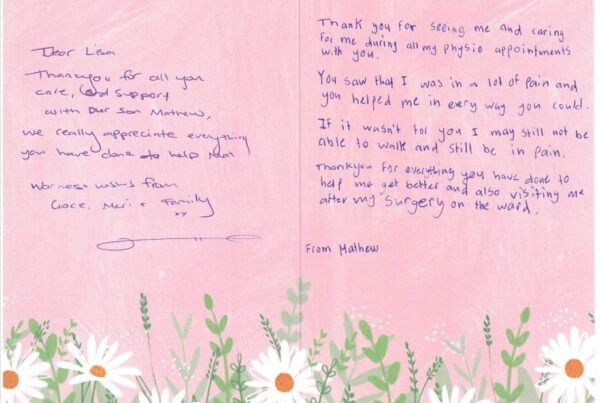 Dear Lisa
Thankyou for all you
care, and support
with our son Mathew,
we really appreciate everything
you have done to help Mat
Warmest wishes from
Meri + Family
xx
Thank you for seeing me and caring
for me during all my physio appointments
with you.
You saw that I was in a lot of pain and
you helped me in every way you could.
If it wasn't for you I may still not be
able to walk and still be in pain.
Thankyou for everything you have done to
help me get better and also visiting me
after my surgery on the ward.
From Mathew